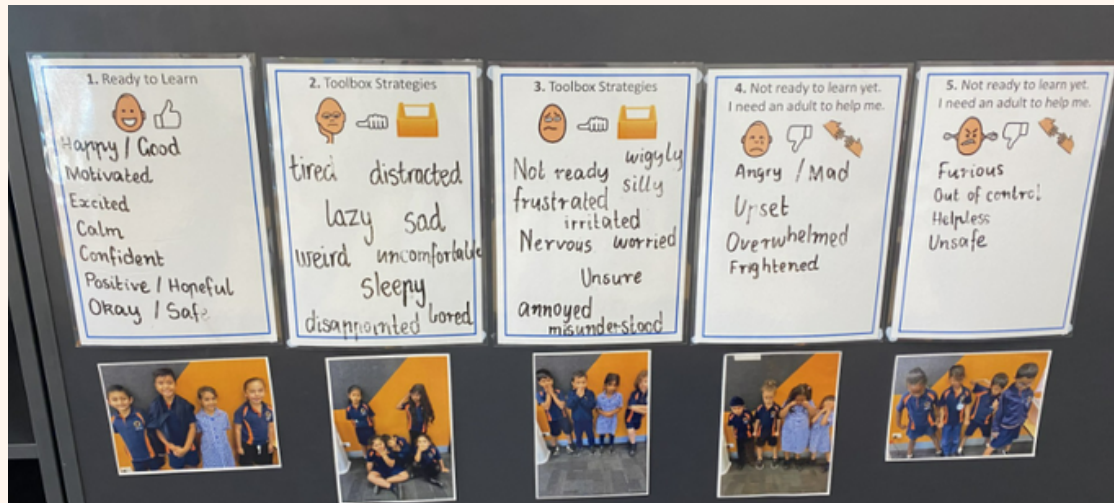 1. Ready to Learn
Happy / Good
Motivated
Excited
Calm
Confident
Positive / Hopeful
Okay / Safe
2. Toolbox Strategies
tired distracted
lazy sad
weird uncomfortable
sleepy
disappointed bored
3. Toolbox Strategies
Not ready wiggly
frustrated silly
irritated
Nervous worried
Unsure
annoyed
misunderstood
4. Not ready to learn yet.
I need an adult to help me.
Angry / Mad
Upset
Overwhelmed
Frightened
5. Not ready to learn yet.
I need an adult to help me.
Furious
Out of control
Helpless
Unsafe